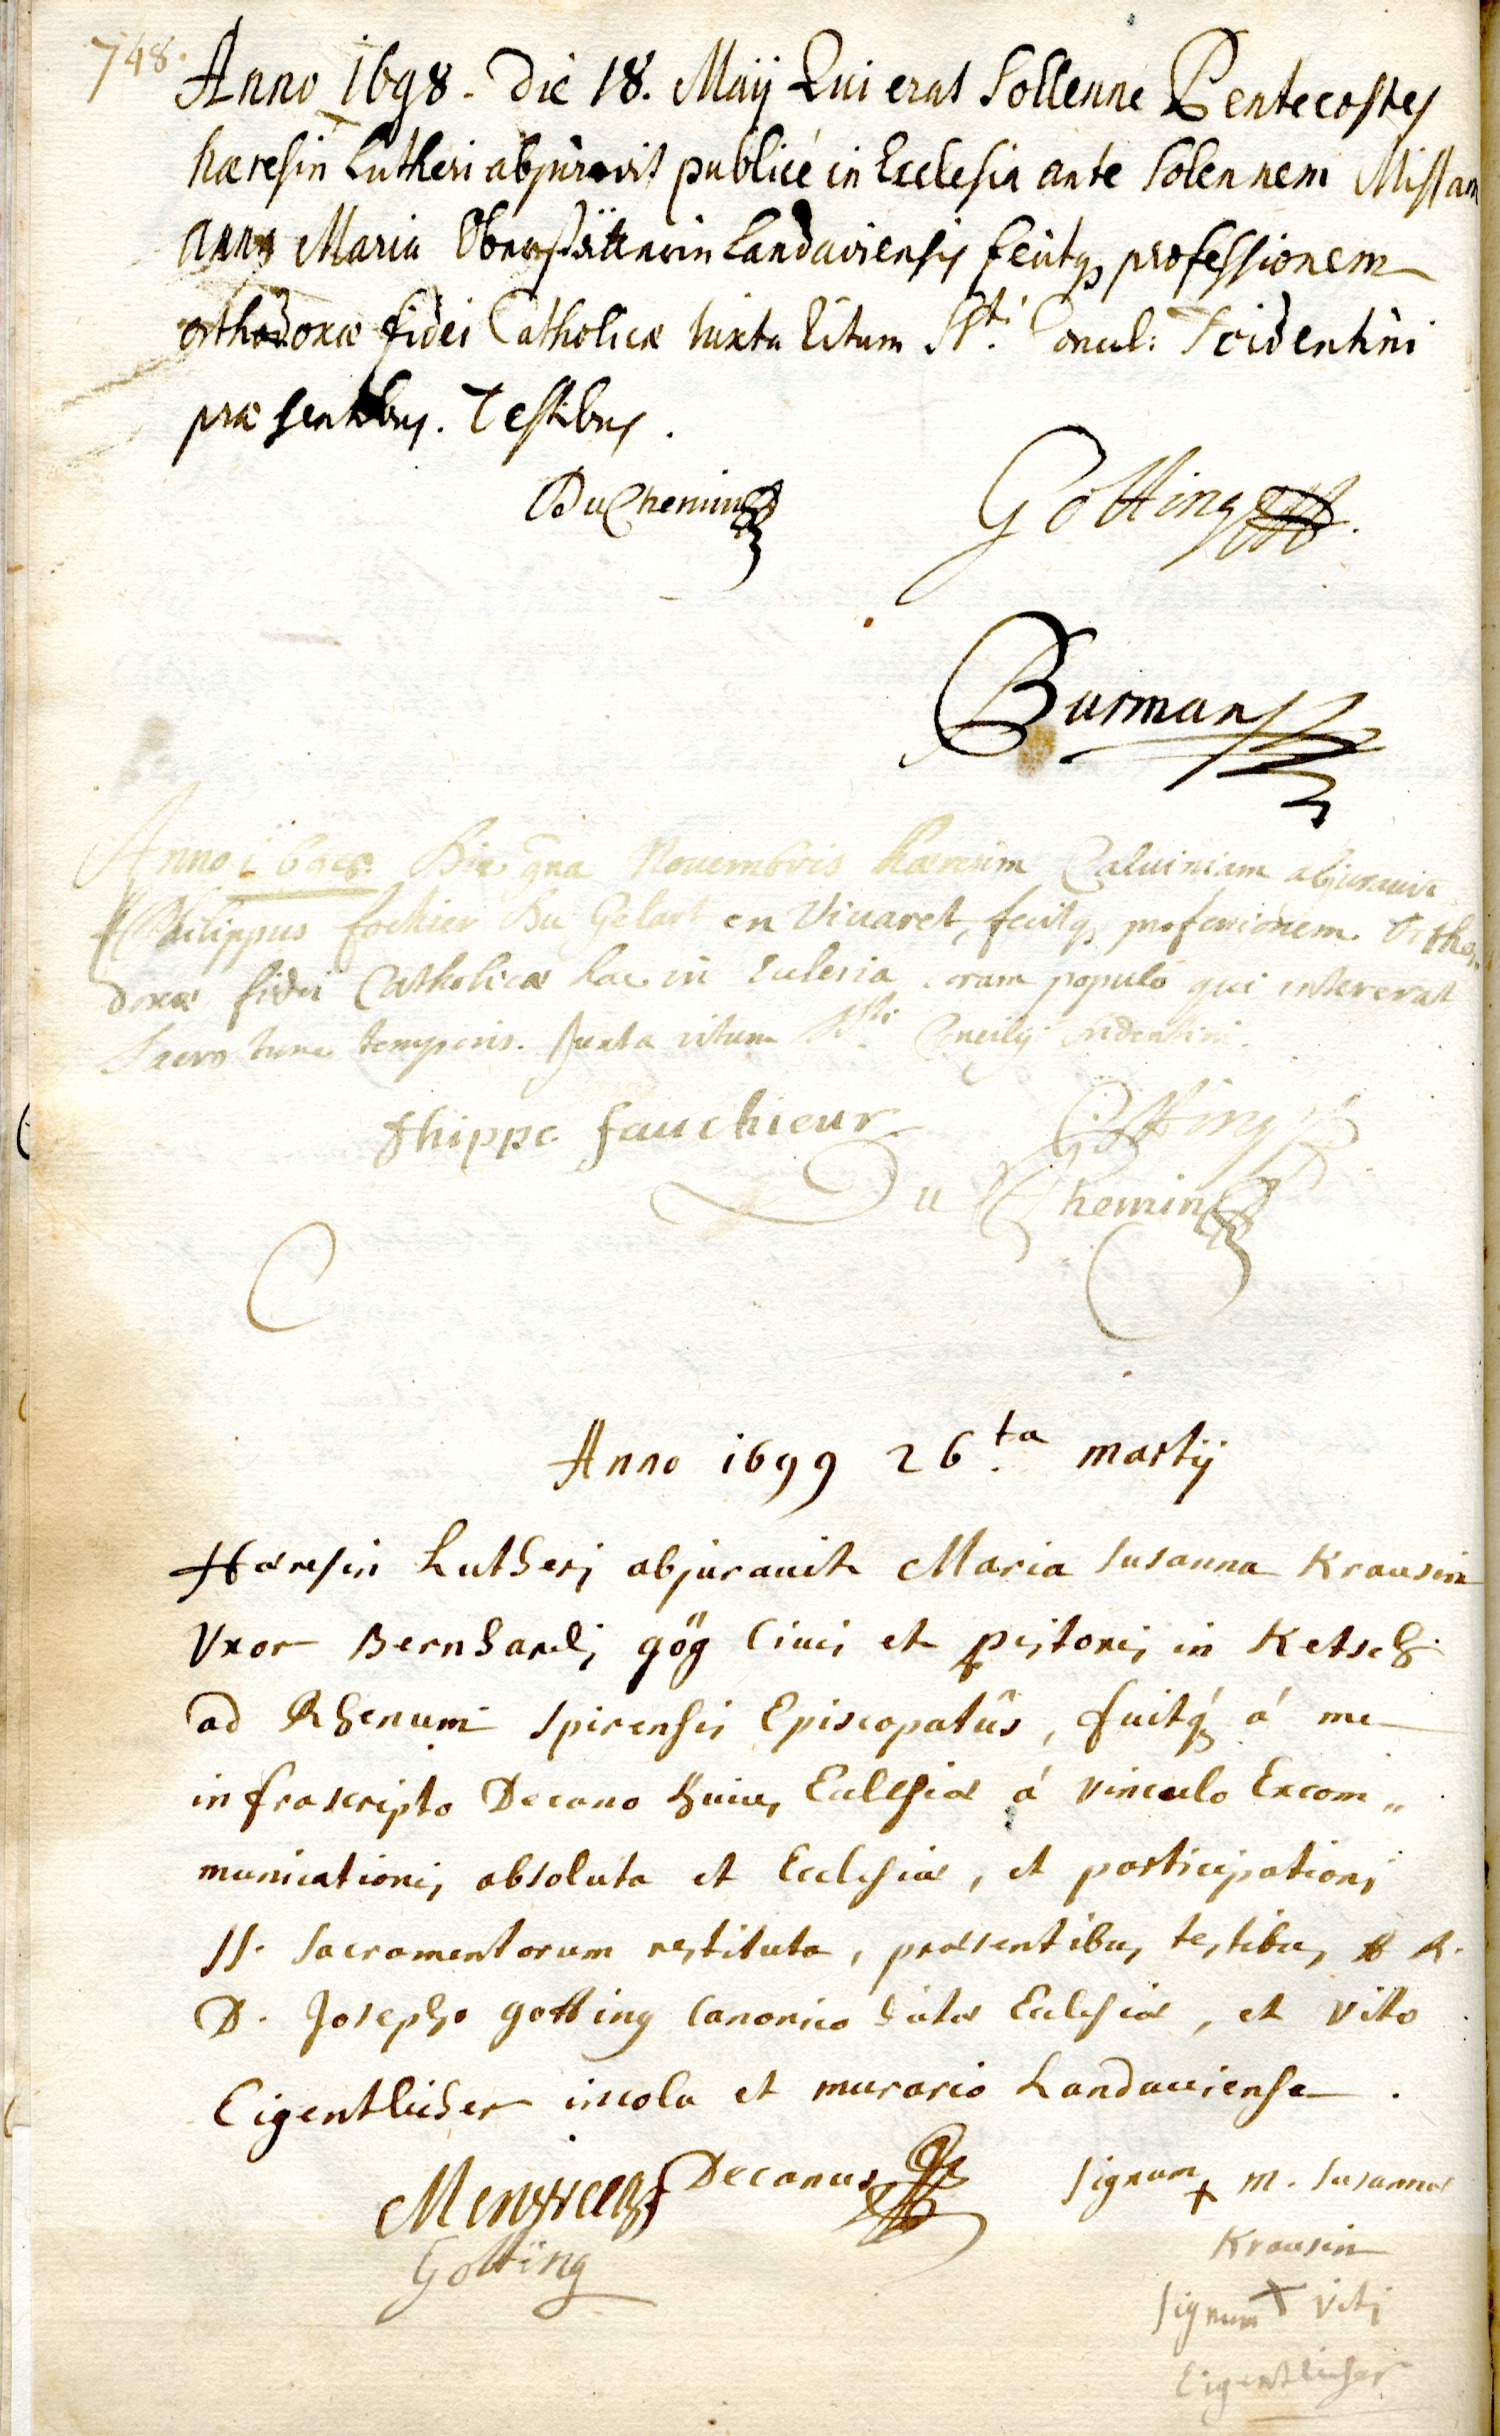 748.
Anno 1698. Die 18. Maÿ Qui erat Sollenne Pentecostes
hæresin Lutheri abjuravit publicé in Ecclesia ante Solennem Missam
Anna Maria Landaviensis fecitq professionem
orthodoxæ fidei Catholicæ Iuxta Ritum Sti. Concil: Tridentini
præsentibus. Testibus.
DuChemin
Götting
Burman
Anno 1698. Die 9na Novembris hæresim Calviniam abjuravit
Philippus fochier Du Gelart en Vivaret, fecitq professionem Ortho„
doxæ fidei Catholicæ hac in Eclesia coram populo qui intererat
Sacro tunc temporis. Juxta ritum Sti. Concilÿ Tridentini.
Phippe fauchieur
Götting
Du Chemin
Anno 1699 26ta martij
Hæresin Lutherj abjurauit Maria Susanna Krausin
Vxor Bernhardj gög Ciuis et pistoris in Ketsch
ad Rhenum Spirensis Episcopatûs, fuitq́ á me
infrascripto Decano huius Eclesiæ á vinculo Excom„
municationis absoluta et Ecclesiæ, et participationi
SS. Sacramentorum restituta, præsentibus testibus R.
D. Josepho gotting Canonico Eclesiæ, et Vito
Eigentlicher incola et murario Landauiense.
Decanus
Signum + M. Susannæ
Götting
Krausin
Signum + Viti
Eigentlicher